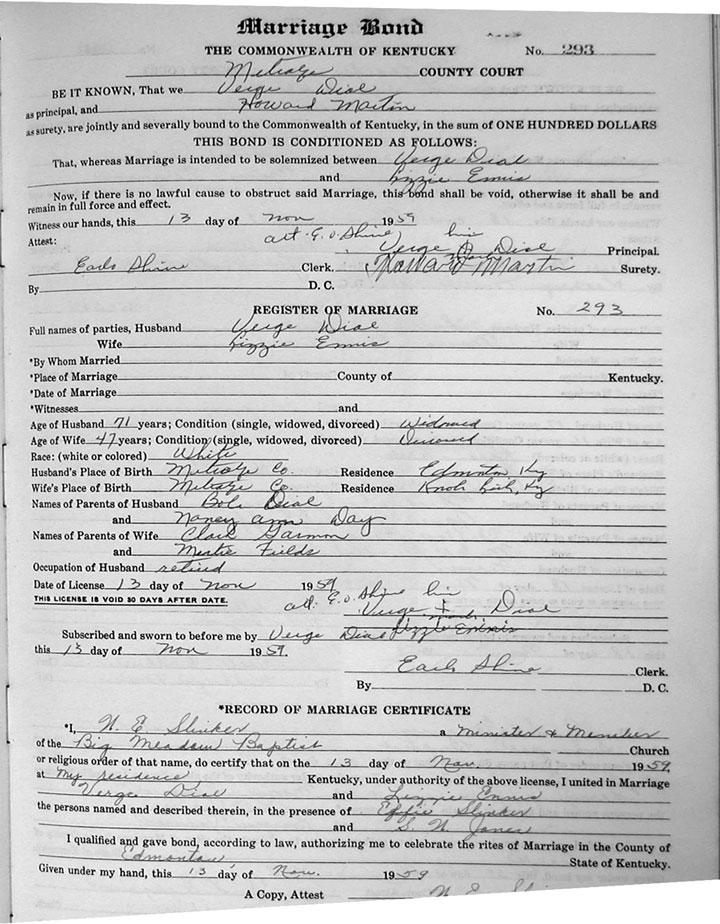 Marriage Bond
THE COMMONWEALTH OF KENTUCKY No. 293
Metcalfe COUNTY COURT
BE IT KNOWN, That we Verge Dial
as principal, and Howard Martin
as surety, are jointly and severally bound to the Commonwealth of Kentucky, in the sum of ONE HUNDRED DOLLARS
THIS BOND IS CONDITIONED AS FOLLOWS:
That, whereas Marriage is intended to be solemnized between Verge Dial
and Lizzie Ennis
Now, if there is no lawful cause to obstruct said Marriage, this bond shall be void, otherwise it shall be and
remain in full force and effect.
Witness our hands, this 13 day of Nov 1959
Attest: att. E. O. Shine his
Verge Dial Principal.
mark
Earls Shine Clerk. Howard Martin Surety.
By D. C.
REGISTER OF MARRIAGE No. 293
Full names of parties, Husband Verge Dial
Wife Lizzie Ennis
*By Whom Married
*Place of Marriage County of Kentucky.
*Date of Marriage
*Witnesses and
Age of Husband 71 years; Condition (single, widowed, divorced) Widowed
Age of Wife 47 years; Condition (single, widowed, divorced) Divorced
Race: (white or colored) White
Husband's Place of Birth Metcalfe Co. Residence Edmonton, Ky
Wife's Place of Birth Metcalfe Co. Residence Knob Lick, Ky
Names of Parents of Husband Bob Dial
and Nancy Ann Day
Names of Parents of Wife Clark Garmon
and Mertie Fields
Occupation of Husband retired
Date of License 13 day of Nov 1959
THIS LICENSE IS VOID 30 DAYS AFTER DATE.
att. E. O. Shine his
Verge + Dial
mark
Subscribed and sworn to before me by Verge Dial Lizzie Ennis
this 13 day of Nov 1959.
Earls Shine Clerk.
By D. C.
*RECORD OF MARRIAGE CERTIFICATE
*I, W. E Slinker a Minister & Member
of the Big Meadow Baptist Church
or religious order of that name, do certify that on the 13 day of Nov. 1959,
at My residence, Kentucky, under authority of the above license, I united in Marriage
Verge Dial and Lizzie Ennis
the persons named and described therein, in the presence of Effie Slinker
and S. W. Jones
I qualified and gave bond, according to law, authorizing me to celebrate the rites of Marriage in the County of
Edmonton, State of Kentucky.
Given under my hand, this 13 day of Nov. 1959
A Copy, Attest W. E.